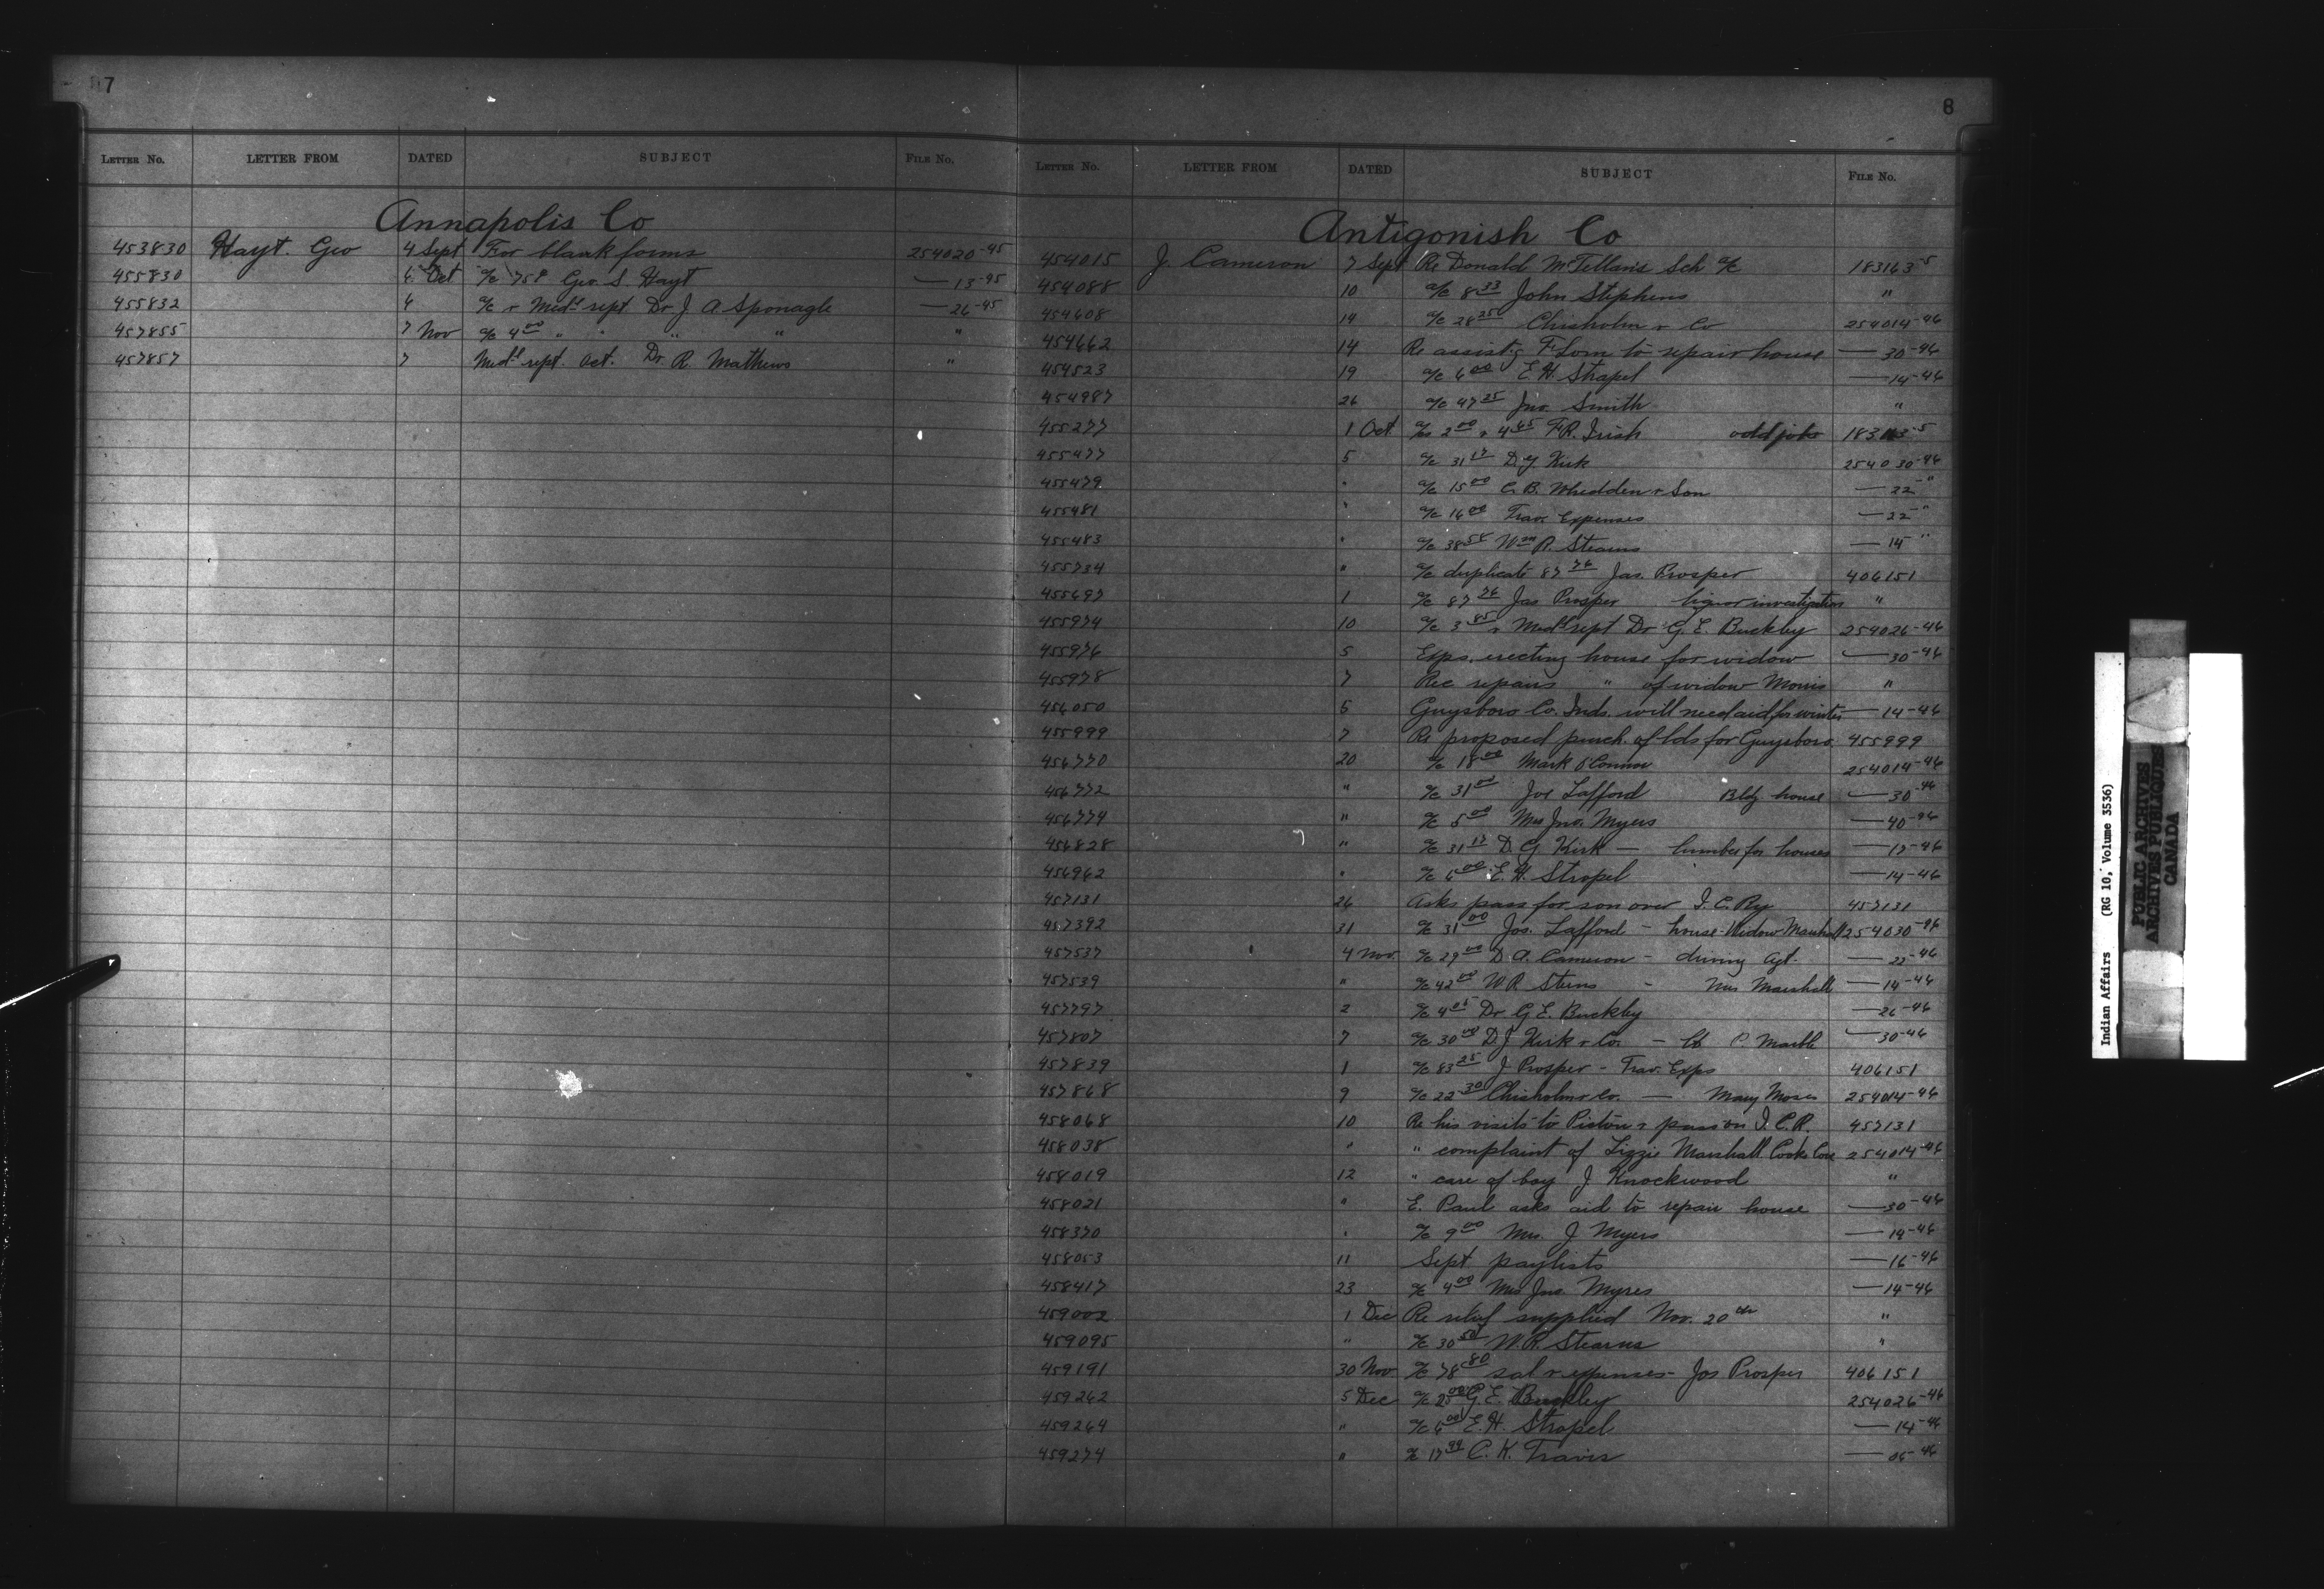 7
LETTER No. LETTER FROM DATED SUBJECT FILE No.
Annapolis Co
453830 Hayt. Geo 4 Sept For blank forms 254020-45
455830 6 Oct a/c 75¢ Geo. S Hayt — 13-45
455832 6 a/c & Med¹ rept Dr J A Sponagle — 26-45
457855 7 Nov a/c 4.00 " " " " "
457857 7 Med¹ rept. Oct. Dr R. Mathews "
8
LETTER No. LETTER FROM DATED SUBJECT FILE No.
Antigonish Co
454015 J. Cameron 7 Sept Re Donald Sch a/c 183163-5
454088 10 a/c 8.33 John Stephens "
454608 14 a/c 28.25 Chisholm & Co 254014-46
454662 14 Re assist.g to repair house — 30-46
454523 19 a/c 6.00 E. H. Strapel — 14-46
454987 26 a/c 47.25 Jno. Smith "
455277 1 Oct a/cs 2.00 & 4.45 F R. Irish odd jobs 183163-5
455477 5 a/c 31.17 D. G. Kirk 254030-46
455479 " a/c 15.00 C. B. Whedden & Son — 22 "
455481 " a/c 16.00 Trav. Expenses — 22 "
455483 " a/c 38.58 Wm R. Stearns — 14 "
455734 " a/c duplicate 87.76 Jas. Prosper 406151
455697 1 a/c 87.76 Jas Prosper liquor investigation "
455974 10 a/c 3.85 & Med¹ rept Dr G. E. Buckley 254026-46
455976 5 Exps. erecting house for widow — 30-46
455978 7 Rec repairs " of widow Morris "
456050 5 Guysboro Co. Inds. will need aid for winter — 14-46
455999 7 Re proposed purch. of lots for Guysboro. 455999
456770 20 a/c 18.00 Mark O'Connor 254014-46
456772 " a/c 31.00 Jos Lafford Bldg house — 30-46
456774 " a/c 5.00 Mrs Jno. Myers — 40-46
456828 " a/c 31.17 D. G Kirk — lumber for houses — 17-46
456962 " a/c 6.00 E. H. Stropel — 14-46
457131 26 Asks pass for son over I. C. Ry 457131
457392 31 a/c 31.00 Jos. Lafford - house Widow Marshall 254030-46
457537 4 Nov. a/c 29.00 D A. Cameron - driving Agt. — 22-46
457539 " a/c 42.00 W R Sterns - Mrs Marshall — 14-46
457797 2 a/c 4.05 Dr G E. Buckley — 26-46
457807 7 a/c 30.00 D. J Kirk & Co. — — 30-46
457839 1 a/c 83.25 J Prosper - Trav. Exps 406151
457868 9 a/c 22.30 Chisholm & Co. — Mary Moses 254014-46
458068 10 Re his visits to Pictou & pass on I. C. R. 457131
458038 " " complaint of Lizzie Marshall Cooks Cove 254014-46
458019 12 " care of boy J Knockwood "
458021 " E. Paul asks aid to repair house — 30-46
458370 " a/c 9.00 Mrs. J Myers — 14-46
458053 11 Sept paylists — 16-46
458417 23 a/c 4.00 Mrs Jno Myres — 14-46
459002 1 Dec Re relief supplied Nov. 20th "
459095 " a/c 30.50 W. R. Stearns "
459191 30 Nov a/c 78.80 sal & expenses - Jos Prosper 406151
459262 5 Dec a/c 25.00 G. E Buckley 254026-46
459264 " a/c 6.00 E. H. Stropel — 14-46
459274 " a/c 17.99 C. K. Travis — 06-46
Indian Affairs (RG 10, Volume 3536)
PUBLIC ARCHIVES
ARCHIVES PUBLIQUES
CANADA